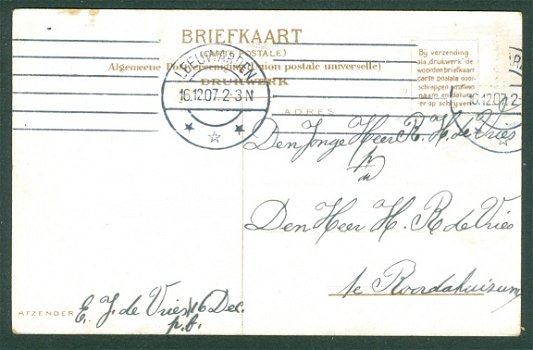 BRIEFKAART
(CARTE POSTALE)
Algemeene Postvereeniging (Union postale universelle)
DRUKWERK
Bij verzending
als „drukwerk" de
woorden briefkaart
carte postale door-
schrappen en alleen
naam en datum
er op schrijven
LEEUWARDEN
16.12.07. 2-3.N
16.12.07. 2
ADRES
Den Jonge Heer R. H. de Vries
p/a
Den Heer H. R de Vries
te Roordahuizum
AFZENDER E. J. de Vries 16 Dec.
p.b.